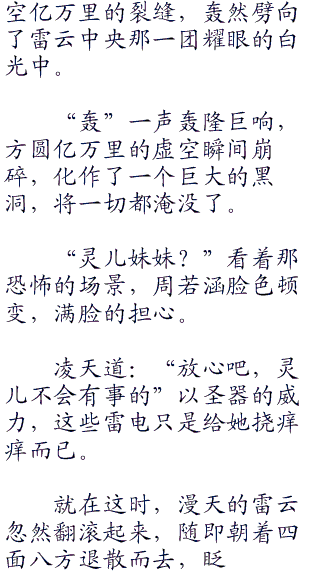 空亿万里的裂缝，轰然劈向
了雷云中央那一团耀眼的白
光中。
“轰”一声轰隆巨响，
方圆亿万里的虚空瞬间崩
碎，化作了一个巨大的黑
洞，将一切都淹没了。
“灵儿妹妹？”看着那
恐怖的场景，周若涵脸色顿
变，满脸的担心。
凌天道：“放心吧，灵
儿不会有事的”以圣器的威
力，这些雷电只是给她挠痒
痒而已。
就在这时，漫天的雷云
忽然翻滚起来，随即朝着四
面八方退散而去，眨